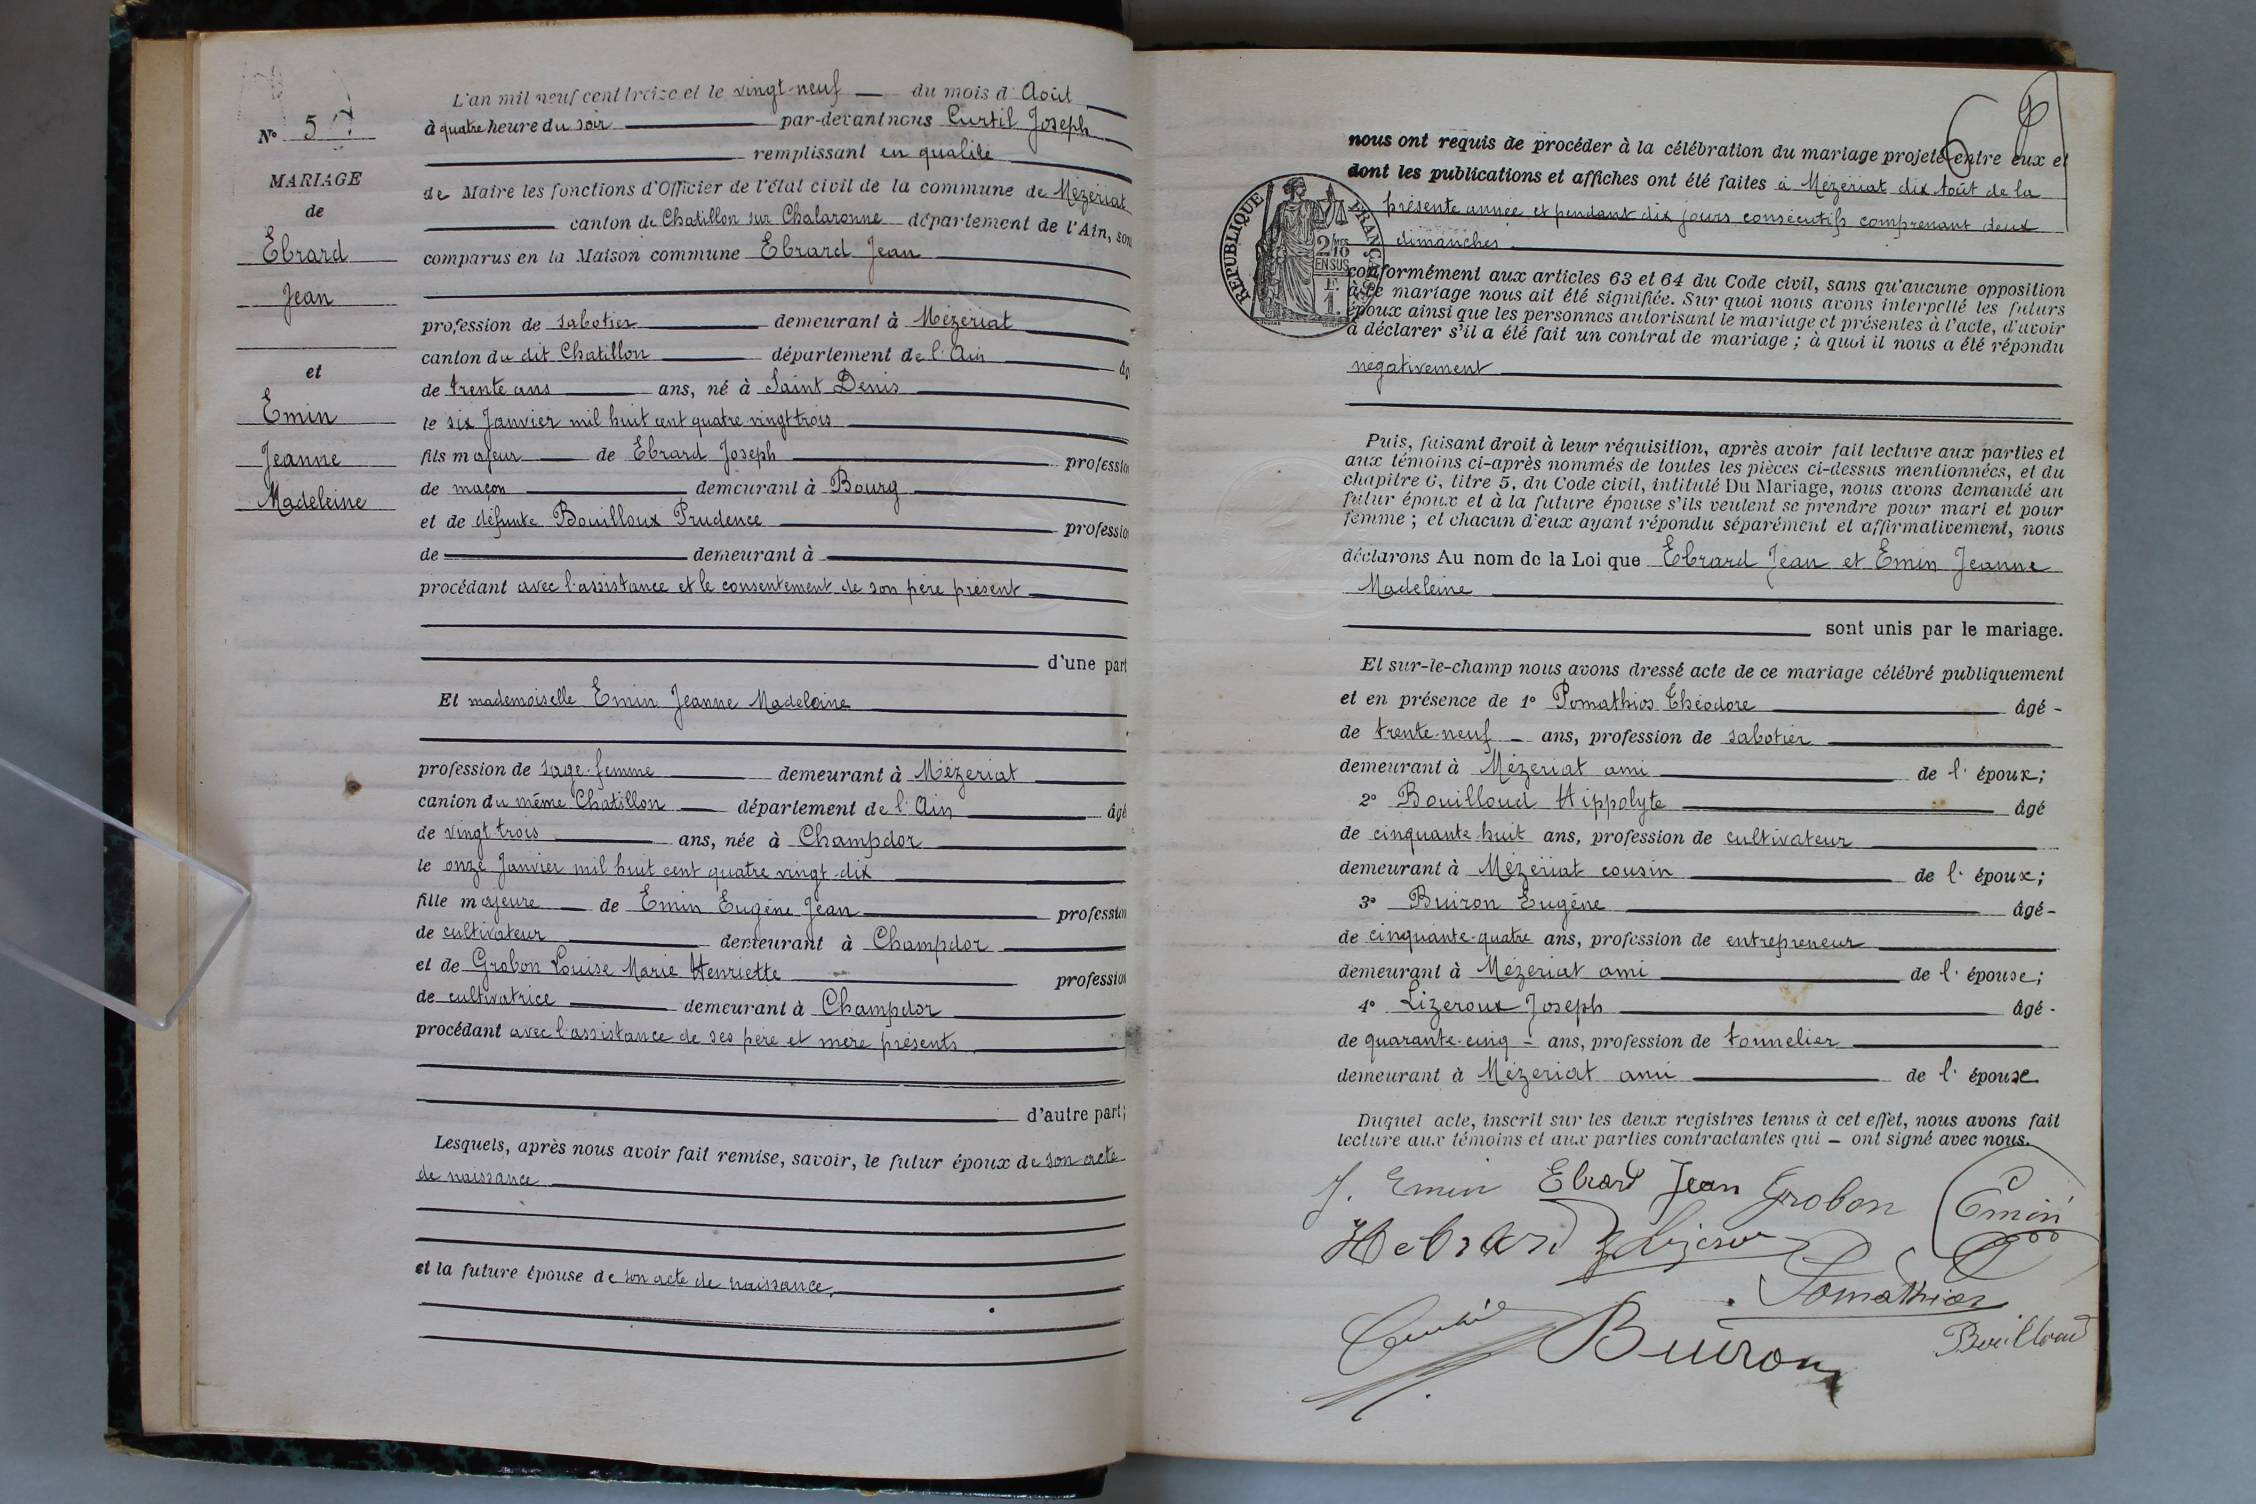 N° 5
MARIAGE
de
Ebrard
Jean
et
Emin
Jeanne
Madeleine
L'an mil neuf cent treize et le vingt-neuf du mois d'Août
à quatre heure du soir par-devant nous Curtil Joseph
remplissant en qualité
de Maire les fonctions d'Officier de l'état civil de la commune de Mézériat
canton de Chatillon sur Chalaronne département de l'Ain, son
comparus en la Maison commune Ebrard Jean
profession de sabotier demeurant à Mézériat
canton du dit Chatillon département de l'Ain âg
de trente ans ans, né à Saint Denis
le six Janvier mil huit cent quatre vingt trois
fils majeur de Ebrard Joseph profession
de maçon demeurant à Bourg
et de défunte Bouilloux Prudence profession
de demeurant à
procédant avec l'assistance et le consentement de son père présent
d'une part
Et mademoiselle Emin Jeanne Madeleine
profession de sage-femme demeurant à Mézériat
canton du même Chatillon département de l'Ain âgé
de vingt trois ans, née à Champdor
le onze Janvier mil huit cent quatre vingt-dix
fille majeure de Emin Eugéne Jean profession
de cultivateur demeurant à Champdor
et de Grobon Louise Marie Henriette profession
de cultivatrice demeurant à Champdor
procédant avec l'assistance de ses père et mère présents
d'autre part;
Lesquels, après nous avoir fait remise, savoir, le futur époux de son acte
de naissance
et la future épouse de son acte de naissance.
nous ont requis de procéder à la célébration du mariage projeté entre eux et
dont les publications et affiches ont été faites à Mézériat dix Août de la
présente année et pendant dix jours consécutifs comprenant deux
dimanches
RÉPUBLIQUE FRANÇAISE
2/10 MES
EN SUS
F.
1.
conformément aux articles 63 et 64 du Code civil, sans qu'aucune opposition
à ce mariage nous ait été signifiée. Sur quoi nous avons interpellé les futurs
époux ainsi que les personnes autorisant le mariage et présentes à l'acte, d'avoir
à déclarer s'il a été fait un contrat de mariage ; à quoi il nous a été répondu
négativement
Puis, faisant droit à leur réquisition, après avoir fait lecture aux parties et
aux témoins ci-après nommés de toutes les pièces ci-dessus mentionnées, et du
chapitre 6, titre 5, du Code civil, intitulé Du Mariage, nous avons demandé au
futur époux et à la future épouse s'ils veulent se prendre pour mari et pour
femme ; et chacun d'eux ayant répondu séparément et affirmativement, nous
déclarons Au nom de la Loi que Ebrard Jean et Emin Jeanne
Madeleine
sont unis par le mariage.
Et sur-le-champ nous avons dressé acte de ce mariage célébré publiquement
et en présence de 1° Pomathios Théodore âgé -
de trente-neuf - ans, profession de sabotier
demeurant à Mézériat ami de l'époux;
2° Bouilloud Hippolyte âgé
de cinquante-huit ans, profession de cultivateur
demeurant à Mézériat cousin de l'époux;
3° Buiron Eugéne âgé -
de cinquante-quatre ans, profession de entrepreneur
demeurant à Mézériat ami de l'épouse;
4° Lizeroux Joseph âgé -
de quarante-cinq - ans, profession de tonnelier
demeurant à Mézériat ami de l'épouse.
Duquel acte, inscrit sur les deux registres tenus à cet effet, nous avons fait
lecture aux témoins et aux parties contractantes qui - ont signé avec nous.
J. Emin Ebrard Jean Grobon Emin
Hebrard Lizeroux
Pomathios
Buiron Bouilloud